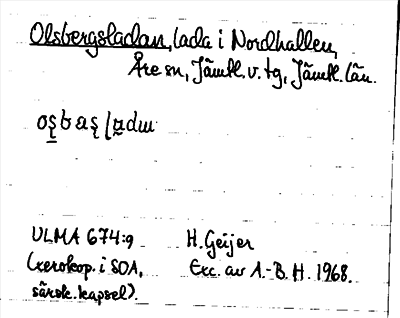 Olsbergsladan, lada i Nordhallen,
Åre sn, Jämtl. v. tg, Jämtl. län.
ULMA 674:9 H. Geijer
(xerokop. i SOA, Exc. av A.-B. H. 1968.
särsk. kapsel).